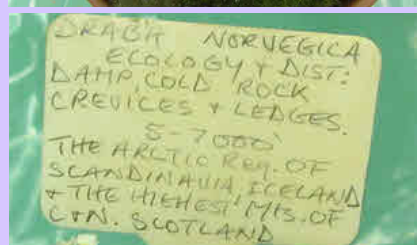 DRABA NORVEGICA
ECOLOGY & DIST:
DAMP, COLD ROCK
CREVICES & LEDGES.
5-7000'
THE ARCTIC REG. OF
SCANDINAVIA, ICELAND
& THE HIGHEST MTS. OF
C & N. SCOTLAND